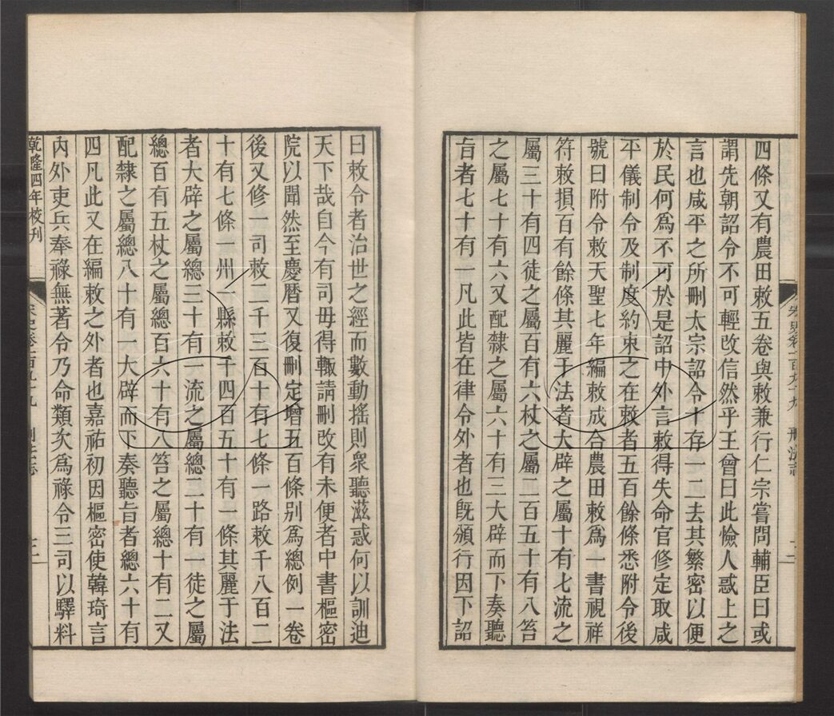 四條又有農田敕五卷與敕兼行仁宗嘗問輔臣曰或
謂先朝詔令不可輕改信然乎王曾曰此憸人惑上之
言也咸平之所刪太宗詔令十存一二去其繁密以便
於民何為不可於是詔中外言敕得失命官修定取咸
平儀制令及制度約束之在敕者五百餘條悉附令後
號曰附令敕天聖七年編敕成合農田敕為一書視祥
符敕損百有餘條其麗于法者大辟之屬十有七流之
屬三十有四徒之屬百有六杖之屬二百五十有八笞
之屬七十有六又配隸之屬六十有三大辟而下奏聽
旨者七十有一凡此皆在律令外者也既頒行因下詔
曰敕令者治世之經而數動搖則衆聽滋惑何以訓迪
天下哉自今有司毋得輙請刪改有未便者中書樞密
院以聞然至慶曆又復刪定增五百條别為總例一卷
後又修一司敕二千三百十有七條一路敕千八百二
十有七條一州一縣敕千四百五十有一條其麗于法
者大辟之屬總三十有一流之屬總二十有一徒之屬
總百有五杖之屬總百六十有八笞之屬總十有二又
配隸之屬總八十有一大辟而下奏聽旨者總六十有
四凡此又在編敕之外者也嘉祐初因樞密使韓琦言
內外吏兵奉祿無著令乃命類次為祿令三司以驛料
乾隆四年校刊